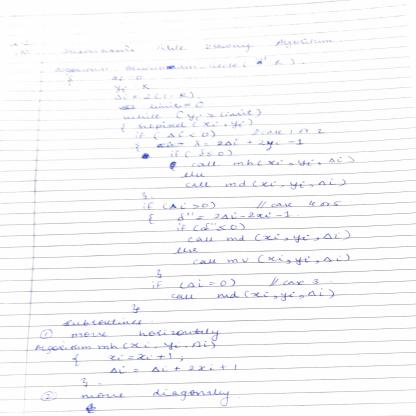 Bresenham's Circle Drawing Algorithm
Algorithm Bresenham_circle ( R )
{ xi = 0
yi = R
Δi = 2(1-R)
limit = 0
while (yi > limit)
{ setpixel (xi, yi)
if (Δi < 0) // case 1 or 2
{ δ = 2Δi + 2yi - 1
if (δ ≤ 0)
call mh (xi, yi, Δi)
else
call md (xi, yi, Δi)
}
if (Δi > 0) // case 4 or 5
{ δ" = 2Δi - 2xi - 1
if (δ" ≤ 0)
call md (xi, yi, Δi)
else
call mv (xi, yi, Δi)
}
if (Δi = 0) // case 3
call md (xi, yi, Δi)
}
Subroutines
① move horizontally
Algorithm mh (xi, yi, Δi)
{ xi = xi + 1;
Δi = Δi + 2xi + 1
}.
② move diagonally
{